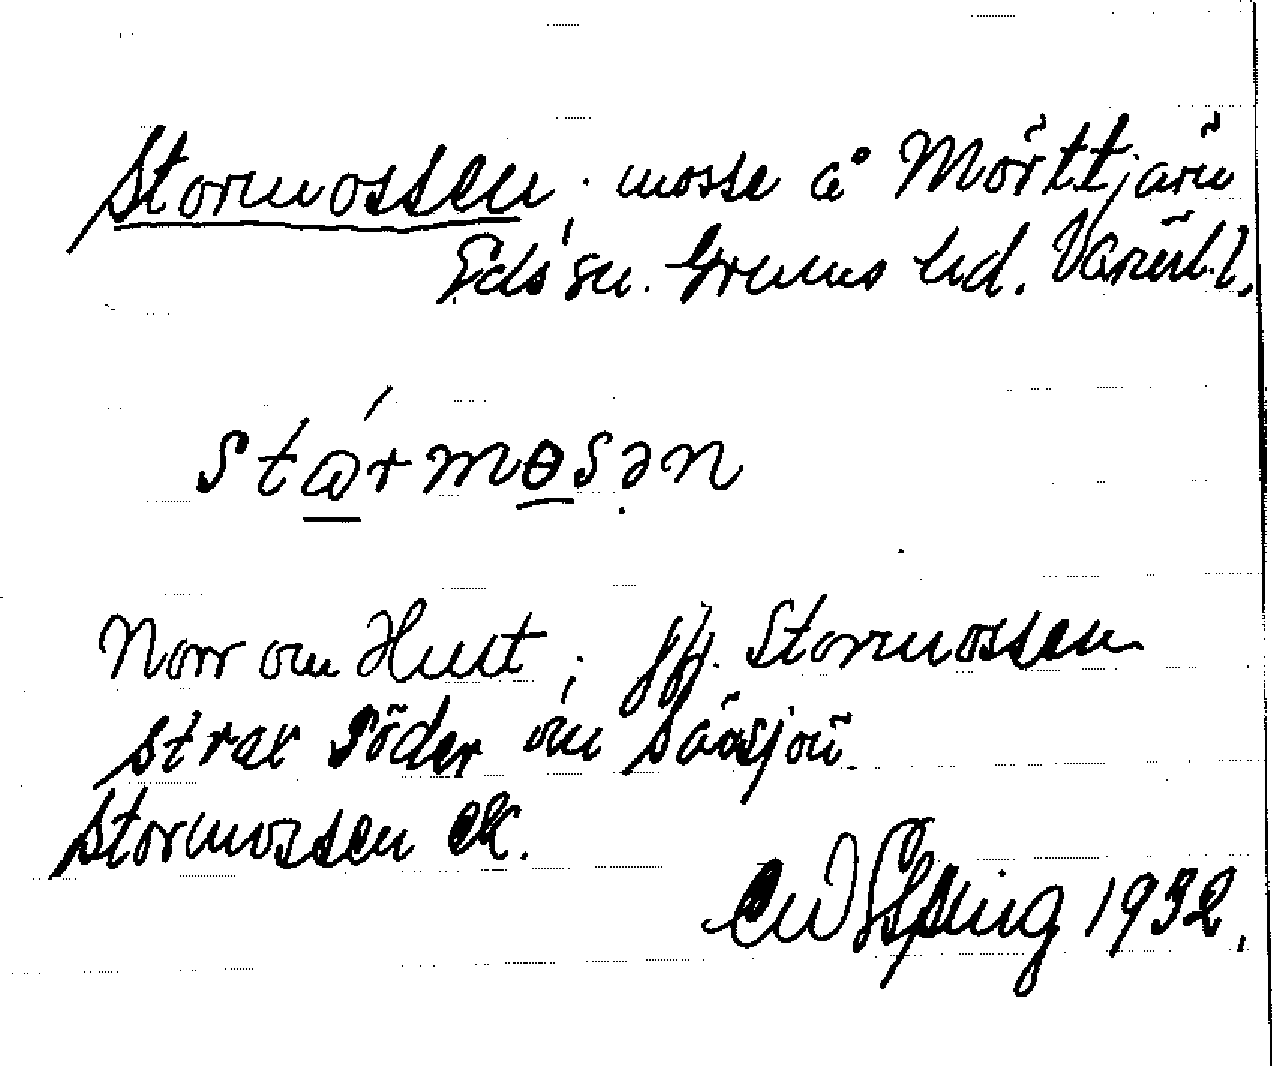 Stormossen; mosse å Mörttjärn
Eds sn. Grums hd. Värml. l.
stɷ́rmɵsən
Norr om Hult; jfj. Stormossen
strax söder om Säasjön.
Stormossen ek.
1932.